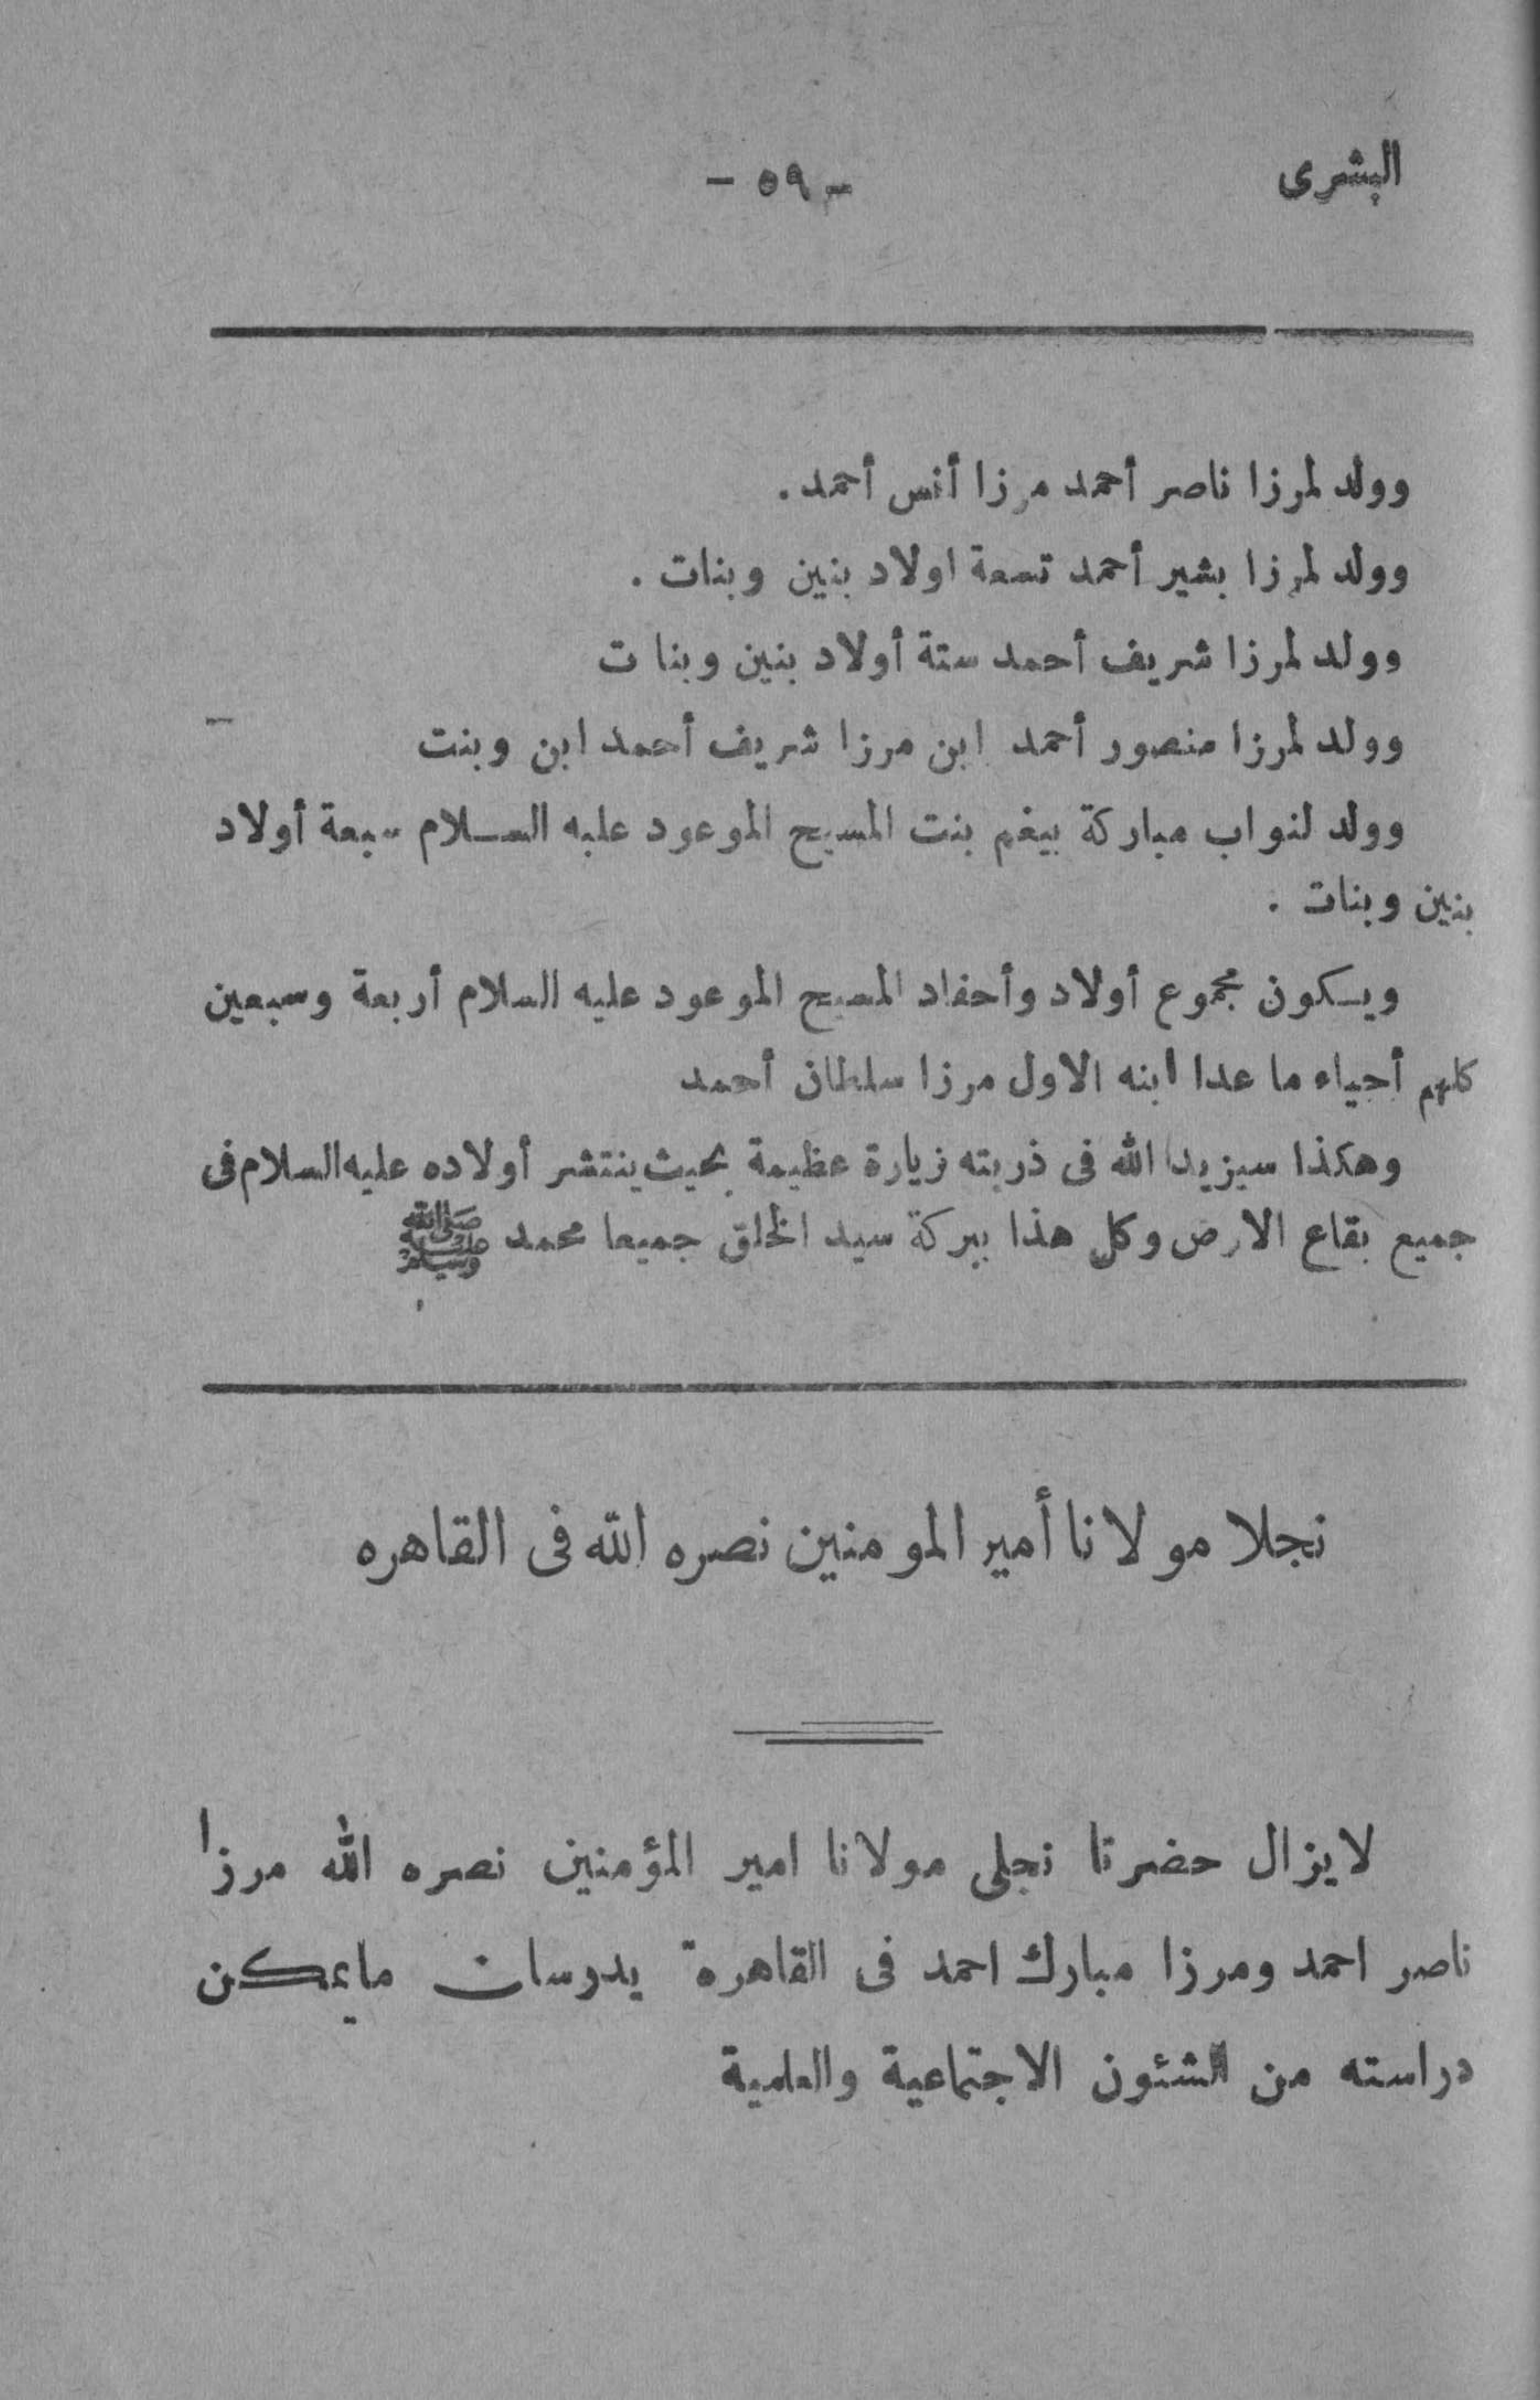 البشرى
- ٥٩ -
وولد لمرزا ناصر أحمد مرزا أنس أحمد.
وولد لمرزا بشير أحمد تسعة اولاد بنين وبنات .
وولد لمرزا شريف أحمد ستة أولاد بنين وبنات
وولد لمرزا منصور أحمد ابن مرزا شريف أحمد ابن وبنت
وولد لنواب مباركة بيغم بنت المسيح الموعود عليه السلام سبعة أولاد
بنين وبنات .
ويكون مجموع أولاد وأحفاد المسيح الموعود عليه السلام أربعة وسبعين
كلهم أحياء ما عدا ابنه الاول مرزا سلطان أحمد
وهكذا سيزيد الله فى ذريته زيارة عظيمة بحيث ينتشر أولاده عليه السلام فى
جميع بقاع الارض وكل هذا ببركة سيد الخلق جميعا محمد ﷺ
نجلا مولانا أمير المومنين نصره الله فى القاهره
لايزال حضرتا نجلى مولانا امير المؤمنين نصره الله مرزا
ناصر احمد ومرزا مبارك احمد فى القاهرة يدرسان مايمكن
دراسته من الشئون الاجتماعية والعلمية